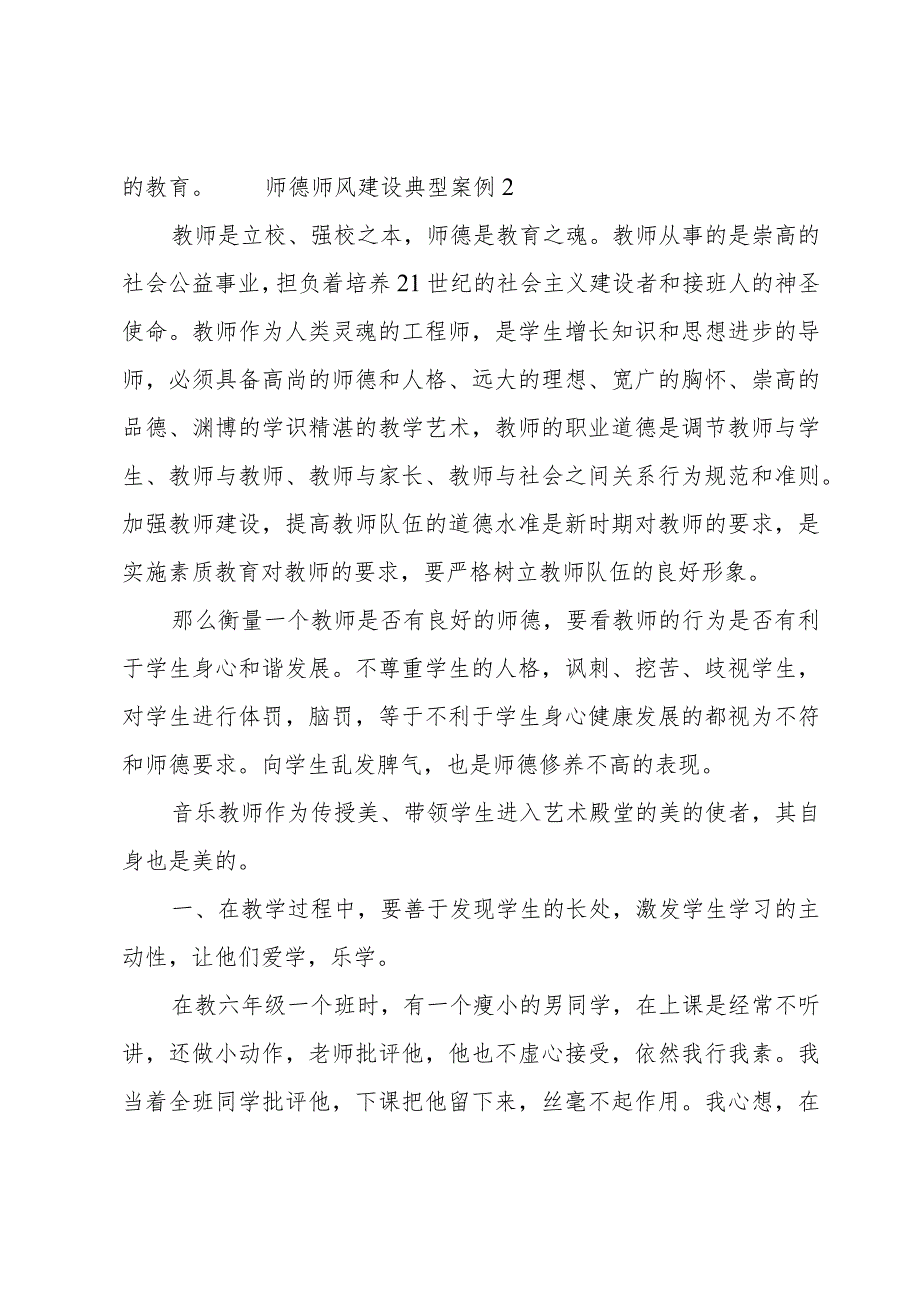 的教育。 师德师风建设典型案例2
教师是立校、强校之本，师德是教育之魂。教师从事的是崇高的
社会公益事业，担负着培养21世纪的社会主义建设者和接班人的神圣
使命。教师作为人类灵魂的工程师，是学生增长知识和思想进步的导
师，必须具备高尚的师德和人格、远大的理想、宽广的胸怀、崇高的
品德、渊博的学识精湛的教学艺术，教师的职业道德是调节教师与学
生、教师与教师、教师与家长、教师与社会之间关系行为规范和准则。
加强教师建设，提高教师队伍的道德水准是新时期对教师的要求，是
实施素质教育对教师的要求，要严格树立教师队伍的良好形象。
那么衡量一个教师是否有良好的师德，要看教师的行为是否有利
于学生身心和谐发展。不尊重学生的人格，讽刺、挖苦、歧视学生，
对学生进行体罚，脑罚，等于不利于学生身心健康发展的都视为不符
和师德要求。向学生乱发脾气，也是师德修养不高的表现。
音乐教师作为传授美、带领学生进入艺术殿堂的美的使者，其自
身也是美的。
一、在教学过程中，要善于发现学生的长处，激发学生学习的主
动性，让他们爱学，乐学。
在教六年级一个班时，有一个瘦小的男同学，在上课是经常不听
讲，还做小动作，老师批评他，他也不虚心接受，依然我行我素。我
当着全班同学批评他，下课把他留下来，丝毫不起作用。我心想，在